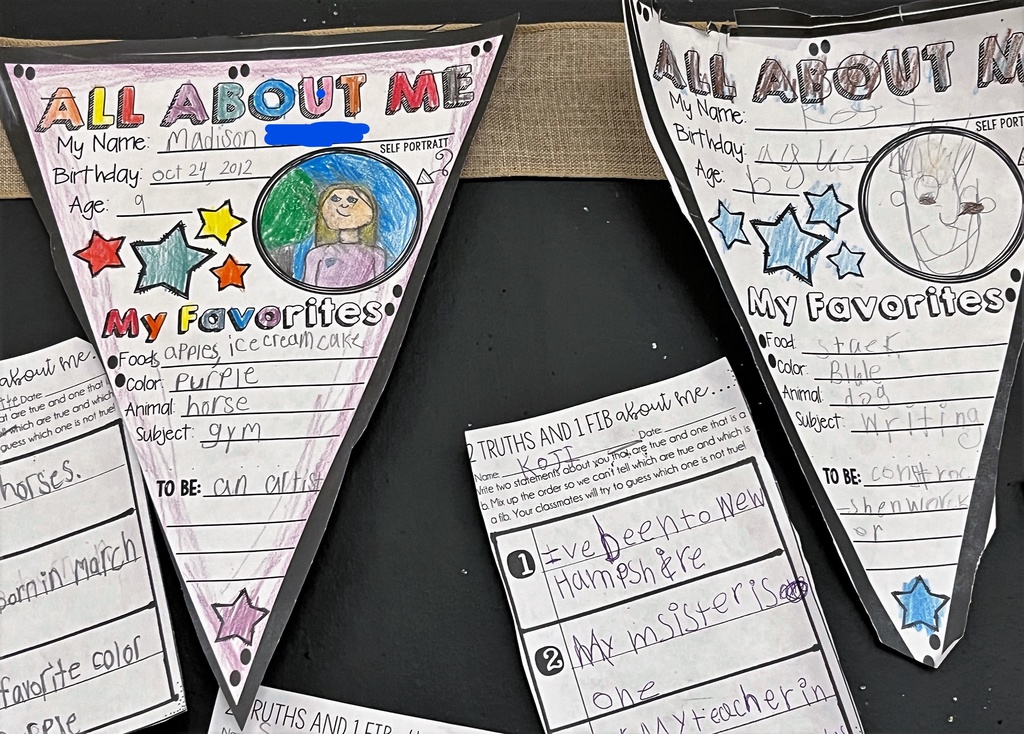 ALL ABOUT ME
My Name: Madison
SELF PORTRAIT
Birthday: oct 24, 2012
Age: 9
My Favorites
Food: apples, ice cream cake
Color: Purple
Animal: horse
Subject: gym
TO BE: an artist
ALL ABOUT M
My Name:
SELF PORT
Birthday:
Age:
My Favorites
Food:
Color: Blule
Animal: dog
Subject: Writing
TO BE: constroc
shenworck
or
about me.
Date
at are true and one that
which are true and which
guess which one is not true!
horses.
born in march
favorite color
2 TRUTHS AND 1 FIB about me....
Name Koji Date
Write two statements about you that are true and one that is a
b. Mix up the order so we can't tell which are true and which is
a fib. Your classmates will try to guess which one is not true!
1 I've been to New
Hampshire
2 My msister is
one
My teacher in
RUTHS AND 1 FIB